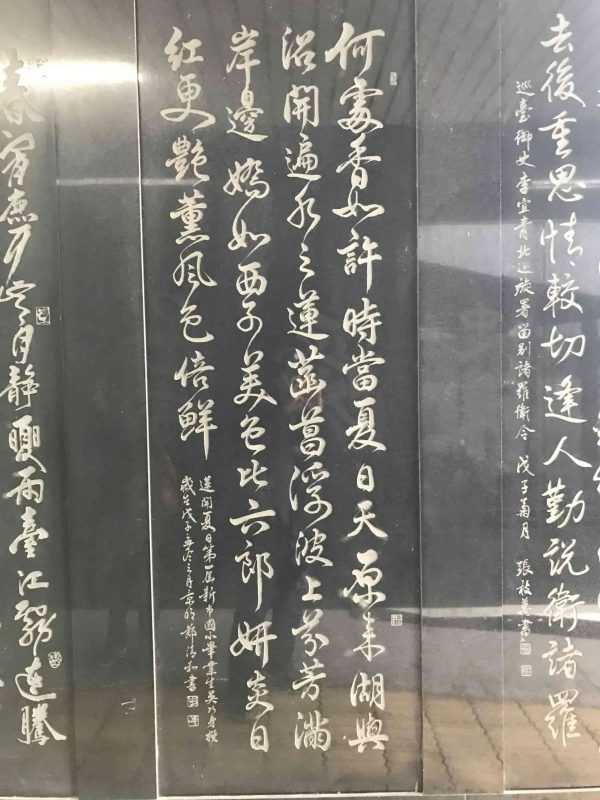 去後重思情較切逢人勤說衛諸羅
巡臺御史李宜青北巡旋署留別諸羅衛令 戊子菊月 張枝書
何處香如許時當夏日天原來湖與
沼開遍水之蓮菡萏浮波上芬芳滿
岸邊嬌如西子美色比六郎妍炎日
紅更艷薰風色倍鮮
蓮開夏日第一屆新市國小畢業生吳身撰
歲在戊子之月京鄭清和書
春宵月靜夏雨臺江連騰